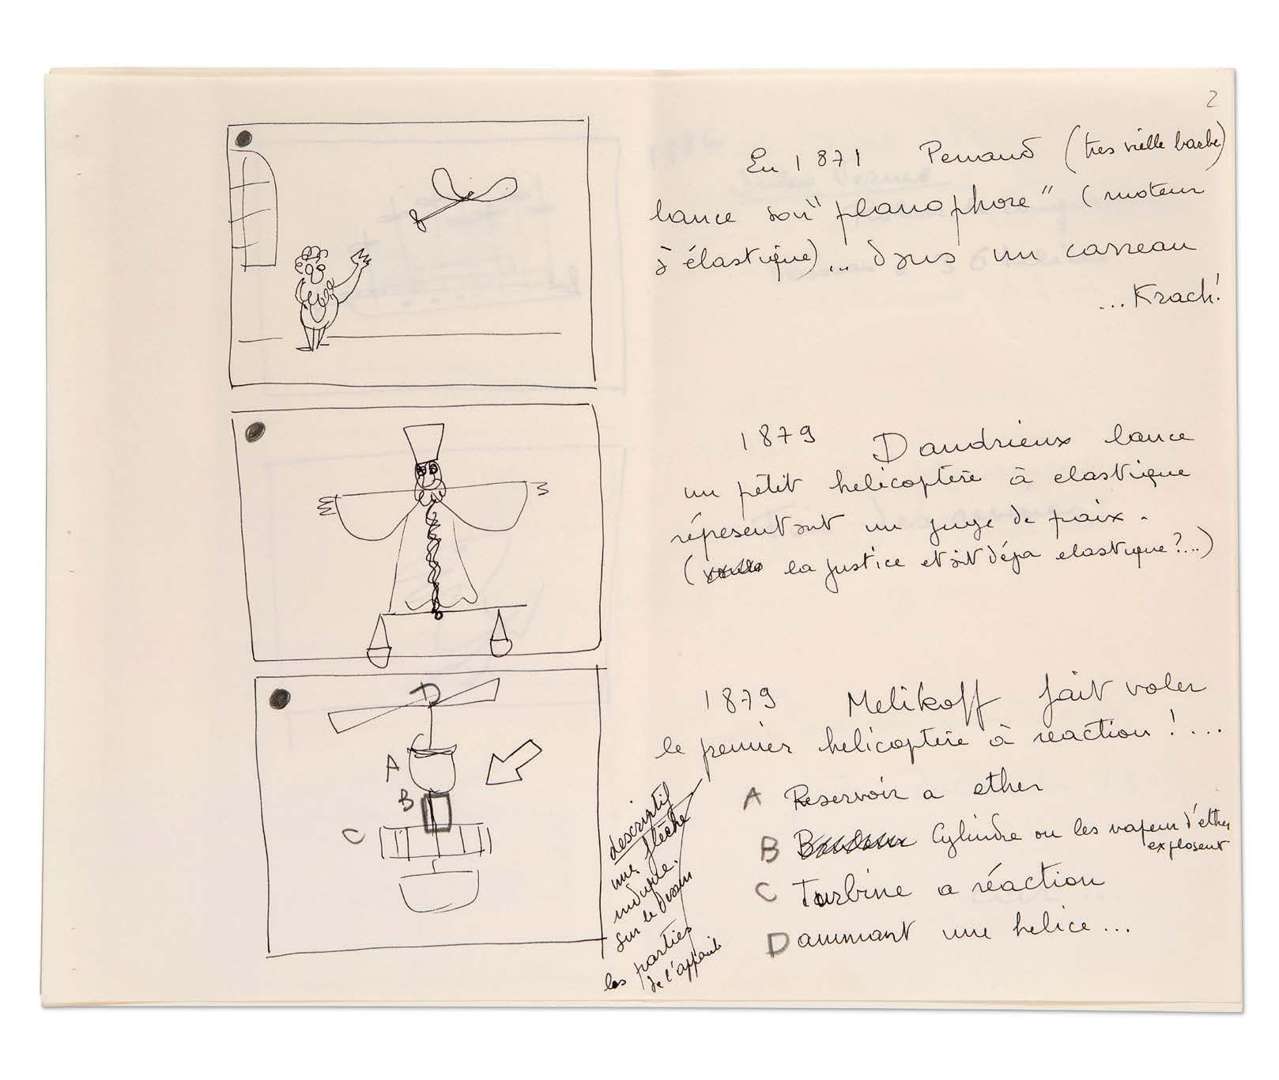 2
En 1871 Penaud (tres vielle barbe)
lance son "planophore" (moteur
à élastique)... dans un carreau
...Krach!
1879 Dandrieux lance
un pétit helicoptère à elastique
répesentant un juge de paix.
( la justice etait déja elastique?...)
D
A
B
C
1879 Melikoff fait voler
le premier helicoptère à reaction!...
A Reservoir a ether
B Cylindre ou les vapeur d'ether
explosent
C Turbine a réaction
D ammant une helice...
descriptif
une flèche
indique
sur le dessin
les parties
de l'appareil